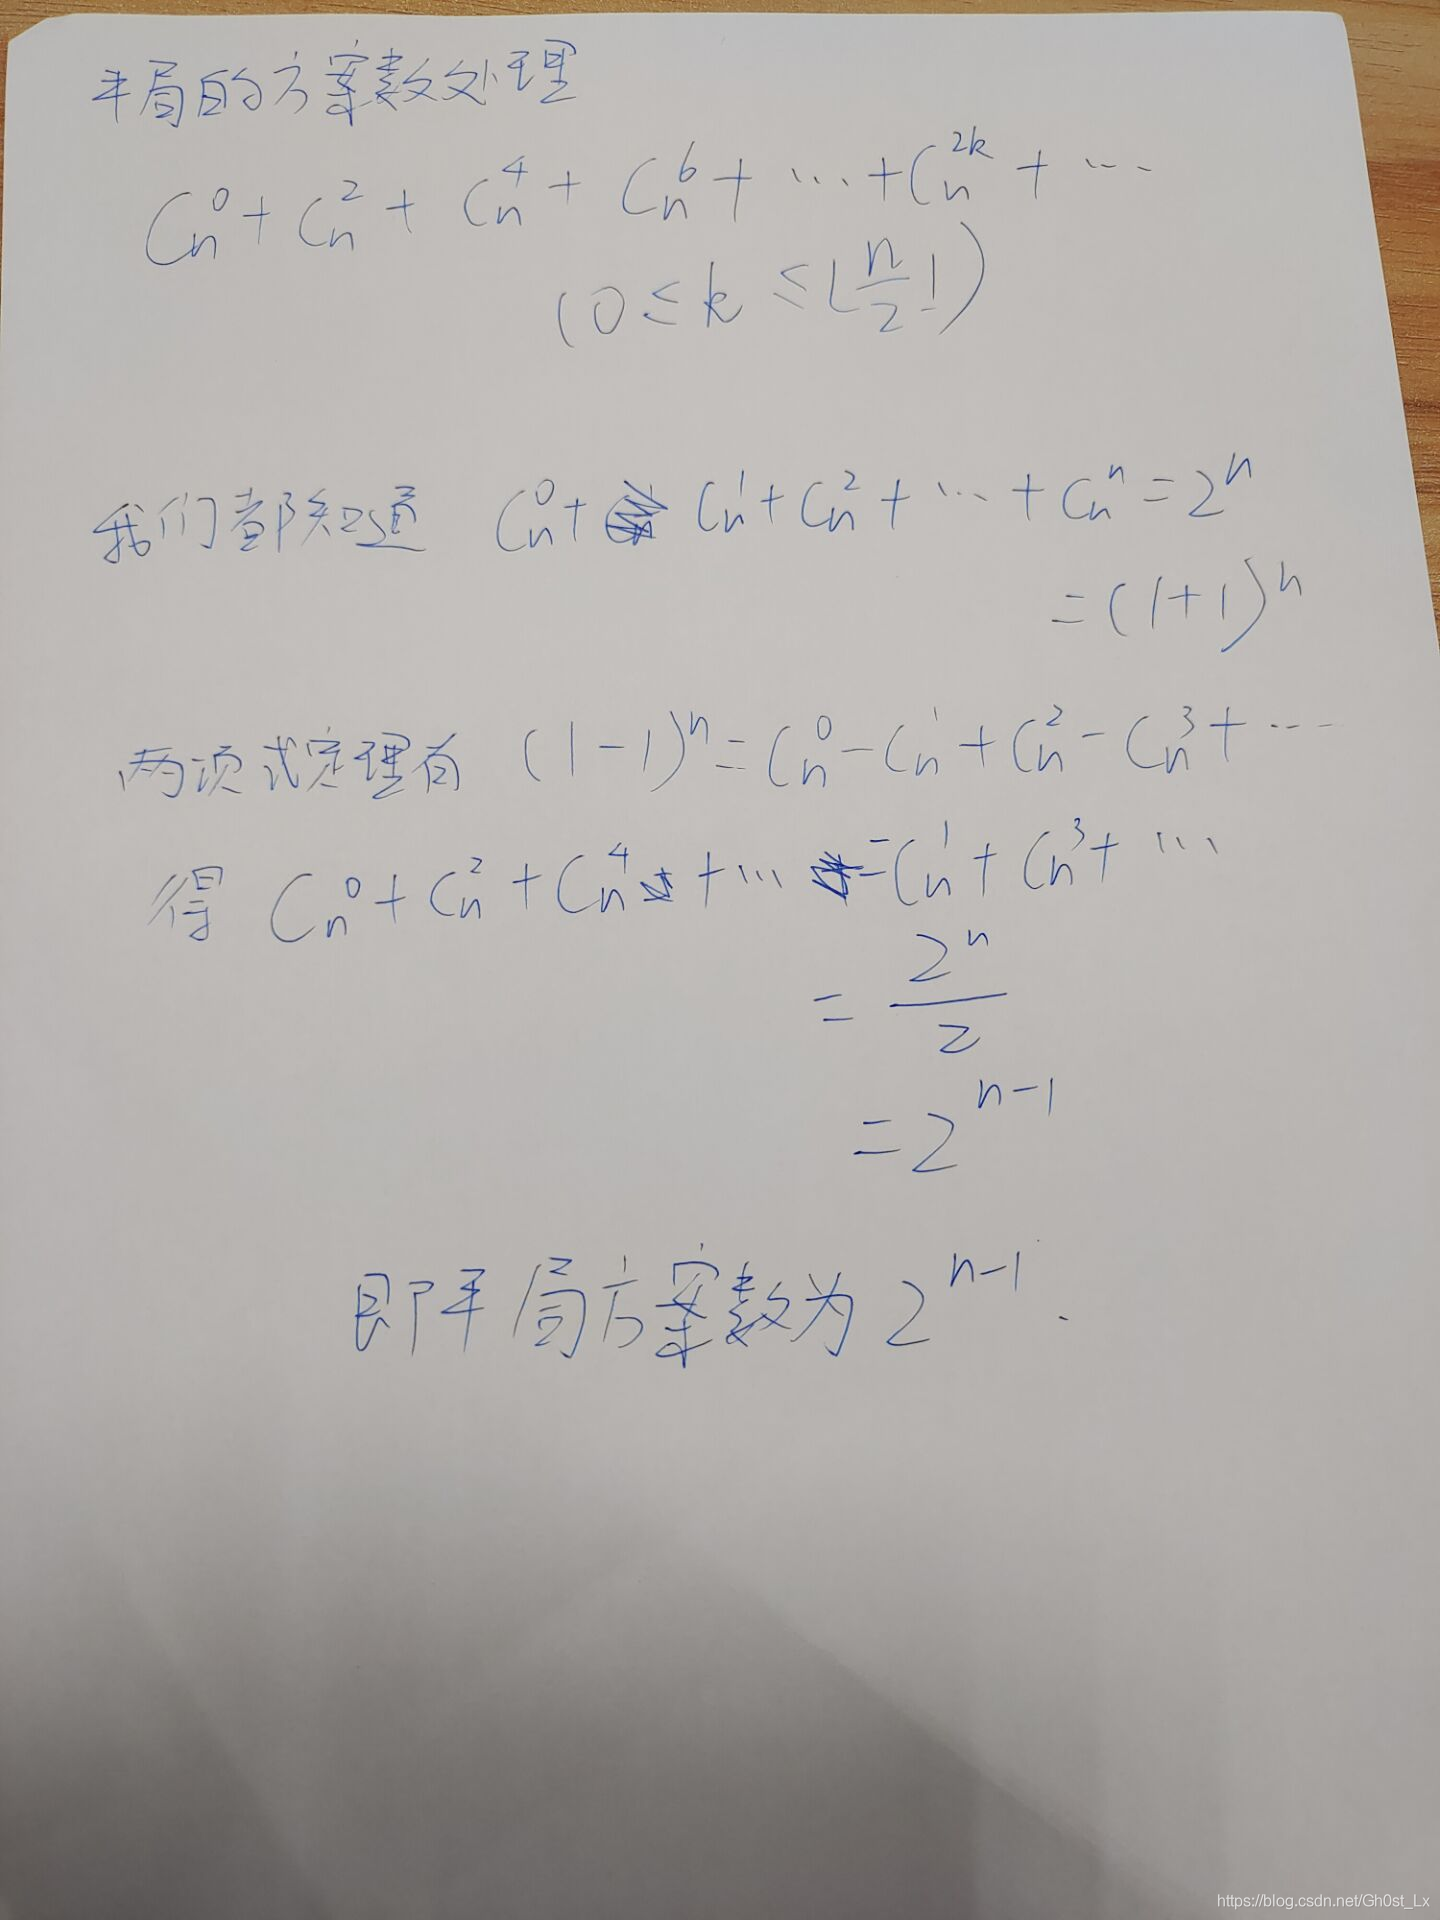 平局的方案数处理
C_n^0 + C_n^2 + C_n^4 + C_n^6 + … + C_n^{2k} + …
(0 ≤ k ≤ ⌊n/2⌋)
我们都知道 C_n^0 + C_n^1 + C_n^2 + … + C_n^n = 2^n
= (1+1)^n
两项式定理有 (1-1)^n = C_n^0 - C_n^1 + C_n^2 - C_n^3 + …
得 C_n^0 + C_n^2 + C_n^4 + … = C_n^1 + C_n^3 + …
= 2^n/2
= 2^{n-1}
即平局方案数为 2^{n-1}.
https://blog.csdn.net/Gh0st_Lx